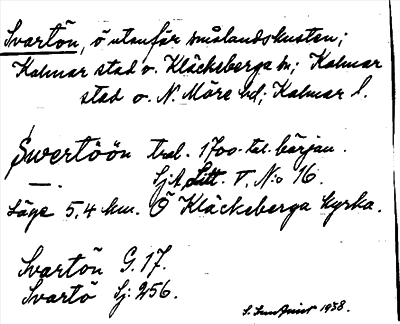 Svartön, ö utanför smålandskusten;
Kalmar stad o. Kläckeberga sn; Kalmar
stad o. N. Möre hd; Kalmar l.
Swertöön trol. 1700-tal. början.
Sjk. Litt. V, N:o 16.
Läge 5,4 km. Ö Kläckeberga kyrka.
Svartön G. 17.
Svartö Sj. 256.
S. 1938.